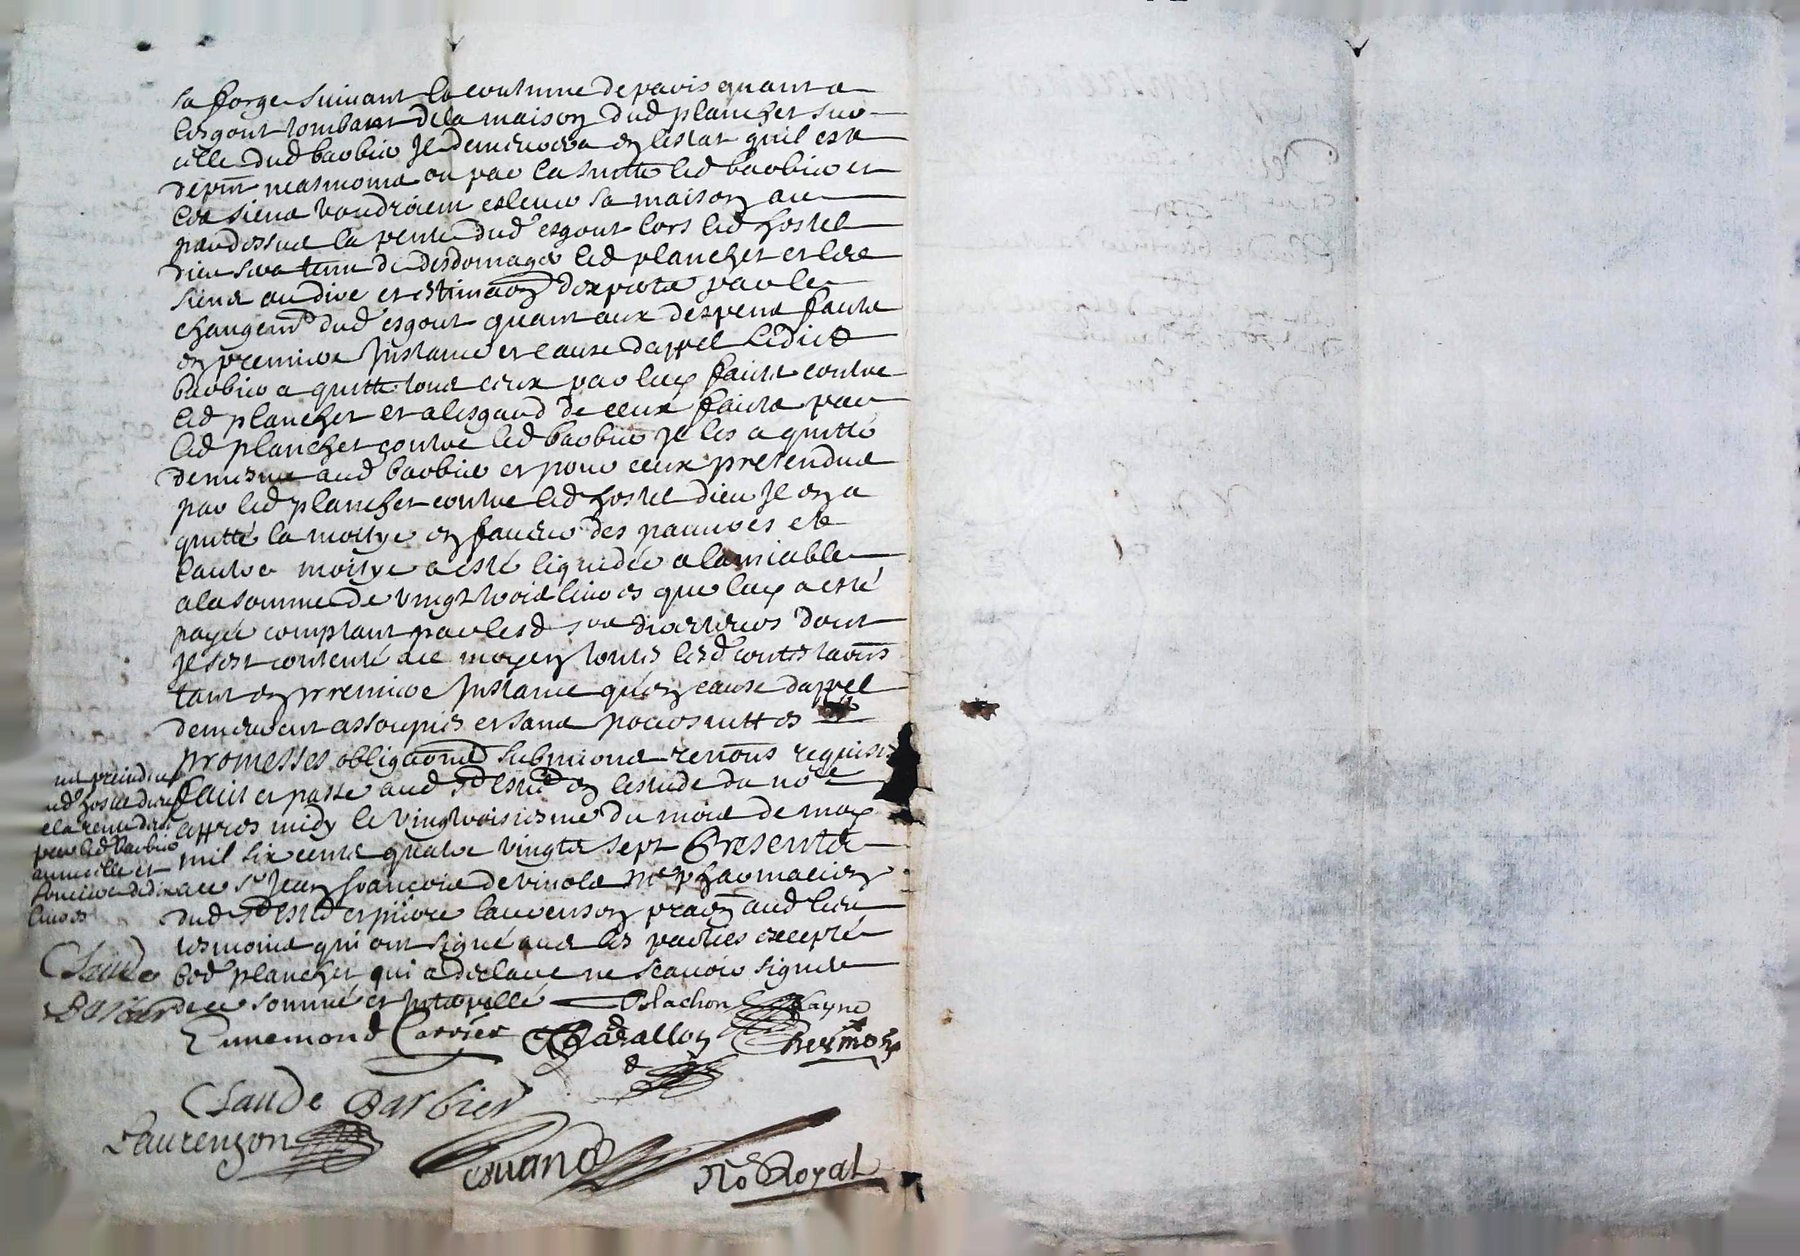 sa forge suivant la coutume de paris quant a
lesgout tombant de la maison dud planchet sur
celle dud barbier Il demeurera en lestat quil est a
depnt neasmoins ou par la suitte led barbier et
les siens voudroient eslever sa maison au
pardessus la pente dud esgout lors led hostel
dieu sera tenu de desdomager led planchet et les
siens au dire et estimaon dexperts par le
changemt dud esgout quant aux despens faits
en premiere Instance et cause dappel ledict
barbier a quitté tous ceux par luy faits contre
led planchet et a lesgard de ceux faits par
led planchet contre led barbier Il les a quitté
de mesme aud barbier et pour ceux pretendus
par led planchet contre led hostel dieu Il en a
quitté la moitye en faveur des pauvres et
lautre moitye a esté liquidée a lamiable
a la somme de vingt trois livres que luy a esté
payée comptant par lesd srs directeurs dont
Il sest contenté au moyen toutes lesd contestaons
tant en premiere Instance quen cause dappel
demeurent assoupies et sans poursuittes
promesses obligaons submions renons requises
fait et passé aud St Estne en lestude du nore
appres midy le vingtroisiesme du mois de may
mil six cents quatre vingts sept Presents
sr Jean françois de vinols Me pharmacien
dud St Estne et pierre laurenson praen aud lieu
tesmoins qui ont signé avec les parties excepté
led planchet qui a declare ne scavoir signer
de ce sommé et Interpellé
ny prejudice
aud hostel dieu
et la rente deue
par led barbier
annuelle et
fonciere de dix
livres
Claude
Barbier
Blachon Payne
Ennemond Carrier Badallon
Claude Barbier
Laurenson
No Royal